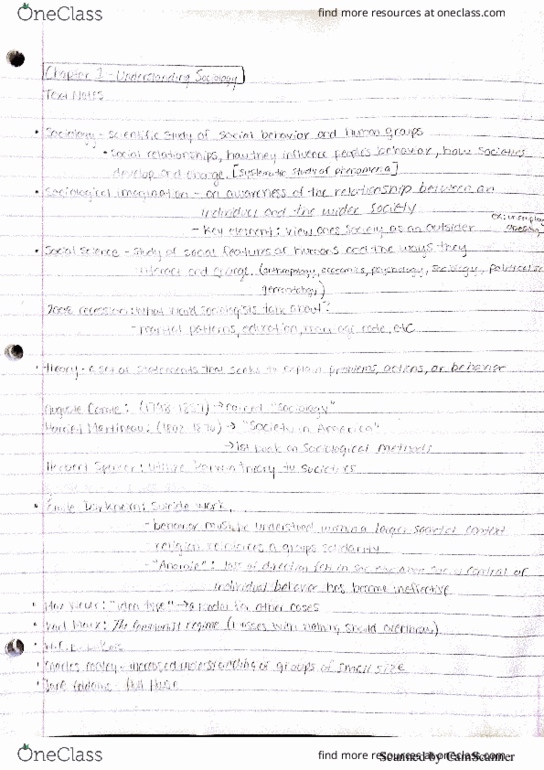 OneClass find more resources at oneclass.com
Chapter 1 - Understanding Sociology
Text Notes
• Sociology - scientific study of social behavior and human groups
• social relationships, how they influence people's behavior, how societies
develop and change. [systematic study of phenomena]
• Sociological imagination - an awareness of the relationship between an
individual and the wider society
- Key element: view ones society as an outsider
• Social science - study of social features of humans and the ways they
interact and change. (anthropology, economics, psychology, sociology, political
gerontology)
recession: What would sociologists talk about?
- marital patterns, education, etc
• Theory - a set of statements that seeks to explain problems, actions, or behavior
Auguste Comte: → coined "Sociology"
Harriet Martineau: → "Society in America"
→ 1st book on sociological methods
Herbert Spencer: theory to societies
• Émile Durkheim: suicide work,
- behavior must be understood within a larger societal context
religion reinforces a groups solidarity
- "Anomie": loss of direction felt in society when social control of
individual behavior has become ineffective
• Max Weber: "ideal type" → a model for other cases
• Karl Marx: The Communist (masses should overthrow)
•
• Charles Cooley - increased understanding of groups of small size
• Jane Addams - Hull House
OneClass find more resources at oneclass.com
Scanned by CamScanner